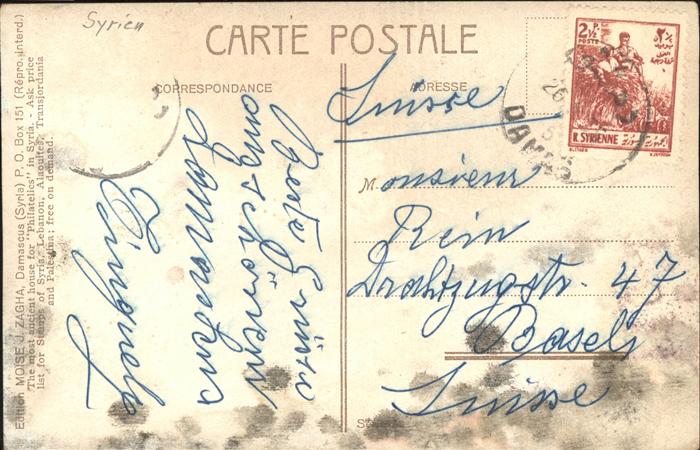 Syrien
CARTE POSTALE
CORRESPONDANCE
ADRESSE
Beste Grüsse
aus
Tinguely
Suisse
Monsieur
Rein
Drahtzugstr. 47
Basel
Suisse
2½ P.
POSTE
R. SYRIENNE
DAMAS
Edition MOISE J. ZAGHA, Damascus (Syria) P. O. Box 151 (Répro. Interd.)
"The most ancient house for "Philatelics" in Syria. - Ask price
list for Stamps of Syria, Lebanon, Alaouites, Transjordania
and Palestina; free on demand.